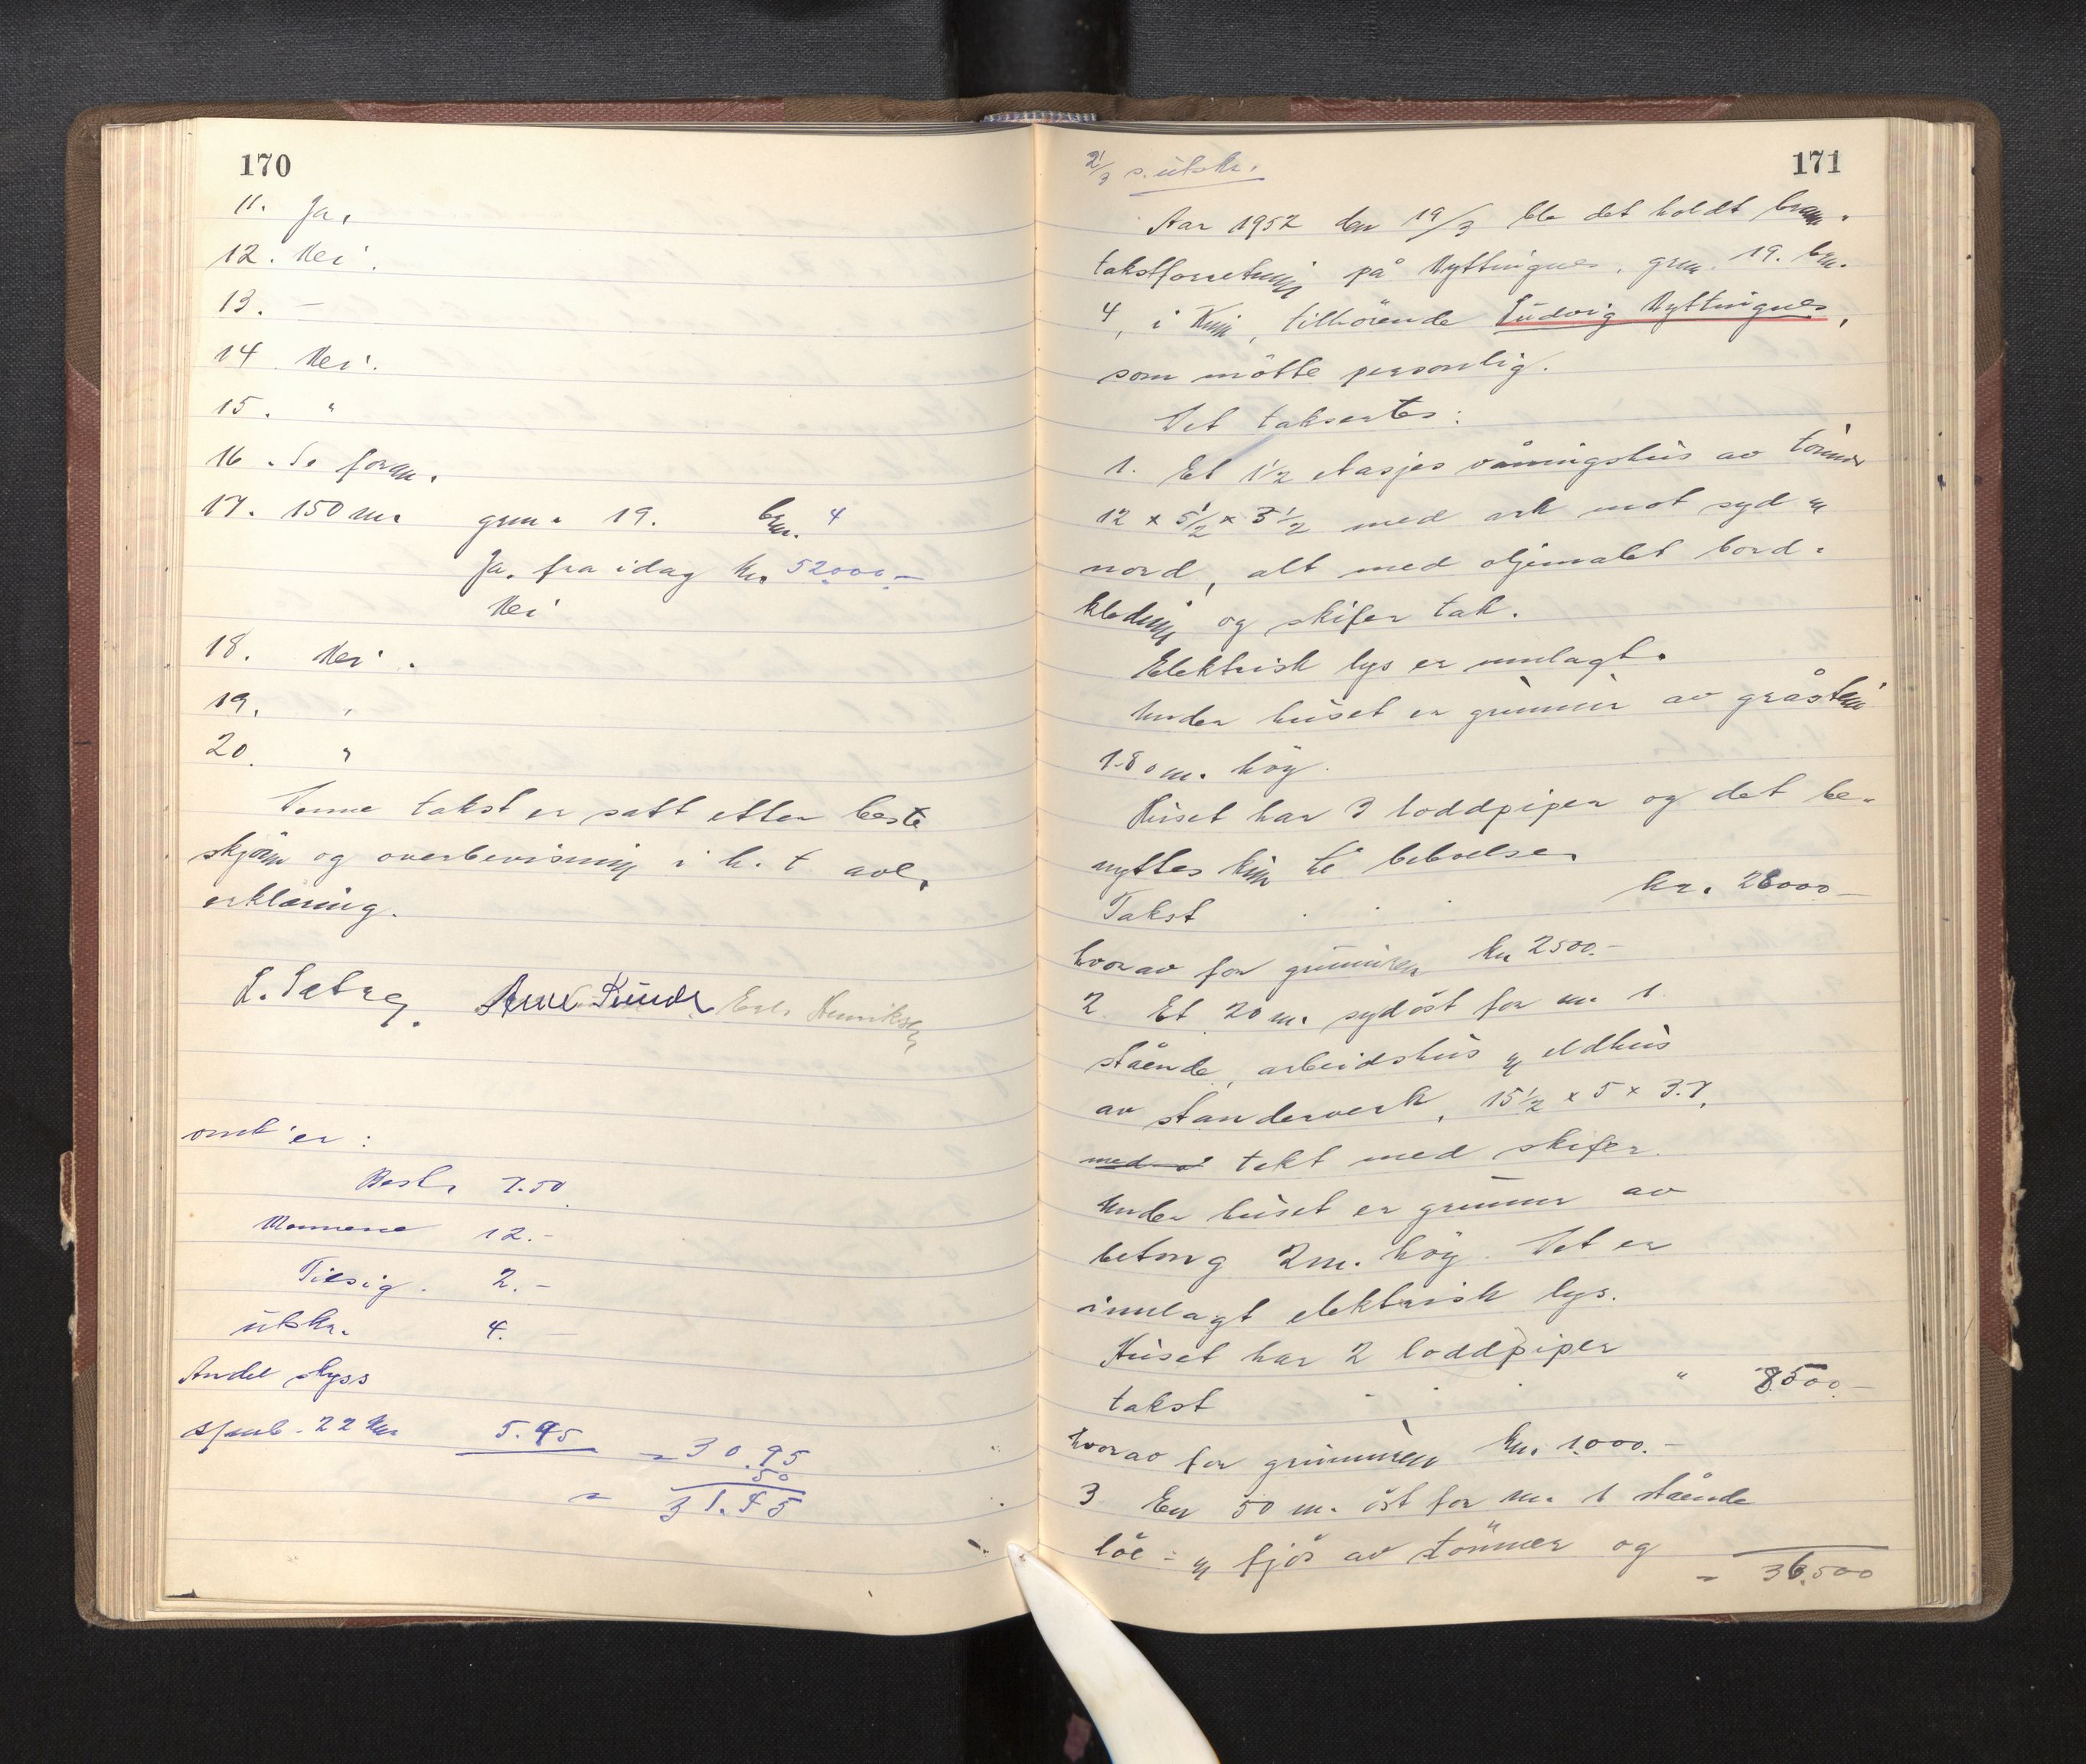 170
11. Ja.
12. Nei.
13. –
14. Nei.
15. "
16. Se foran.
17. 150 m. gnr. 19. bnr. 4
Ja. fra idag kr. 52000.–
Nei
18. Nei.
19. "
20. "
Denne takst er satt etter beste
skjønn og overbevisning i h. t. avl.
erklæring.
L. Sætre. Arne Henriksen
omk er:
Best. 7.50
Mennene 12.–
Tilsig. 2.–
utskr. 4.–
Andel skyss
22 km 5.45 = 30.95
50
= 31.45
171
21/3 s. utskr.
Aar 1952 den 19/3 ble det holdt brann.
takstforretning på Nyttingnes, gnr. 19. bnr.
4, i Kinn, tilhörende Ludvig Nyttingnes,
som mötte personlig.
Det taksertes:
1. Et 1 1/2 etasjes våningshus av tömmer
12 x 5 1/2 x 3 1/2 med ark mot syd og
nord, alt med oljemalet bord-
kledning og skifer tak.
Elektrisk lys er innlagt.
Under huset er grunnmur av gråstein
1.80 m. höy.
Huset har 3 loddpiper og det be-
nyttes kun til beboelse.
Takst . . . kr. 28000.–
hvorav for grunnmuren kr. 2500.–
2. Et 20 m. sydöst for nr. 1
stående, arbeidshus og eldhus
av standerverk, 15 1/2 x 5 x 3.7,
med tekt med skifer.
Under huset er grunnmur av
betong 2 m. höy. Det er
innlagt elektrisk lys.
Huset har 2 loddpiper
takst . . . " 8500.–
hvorav for grunnmuren kr. 1.000.–
3 En 50 m. öst for nr. 1 stående
löe- og fjös av tömmer og
= 36.500